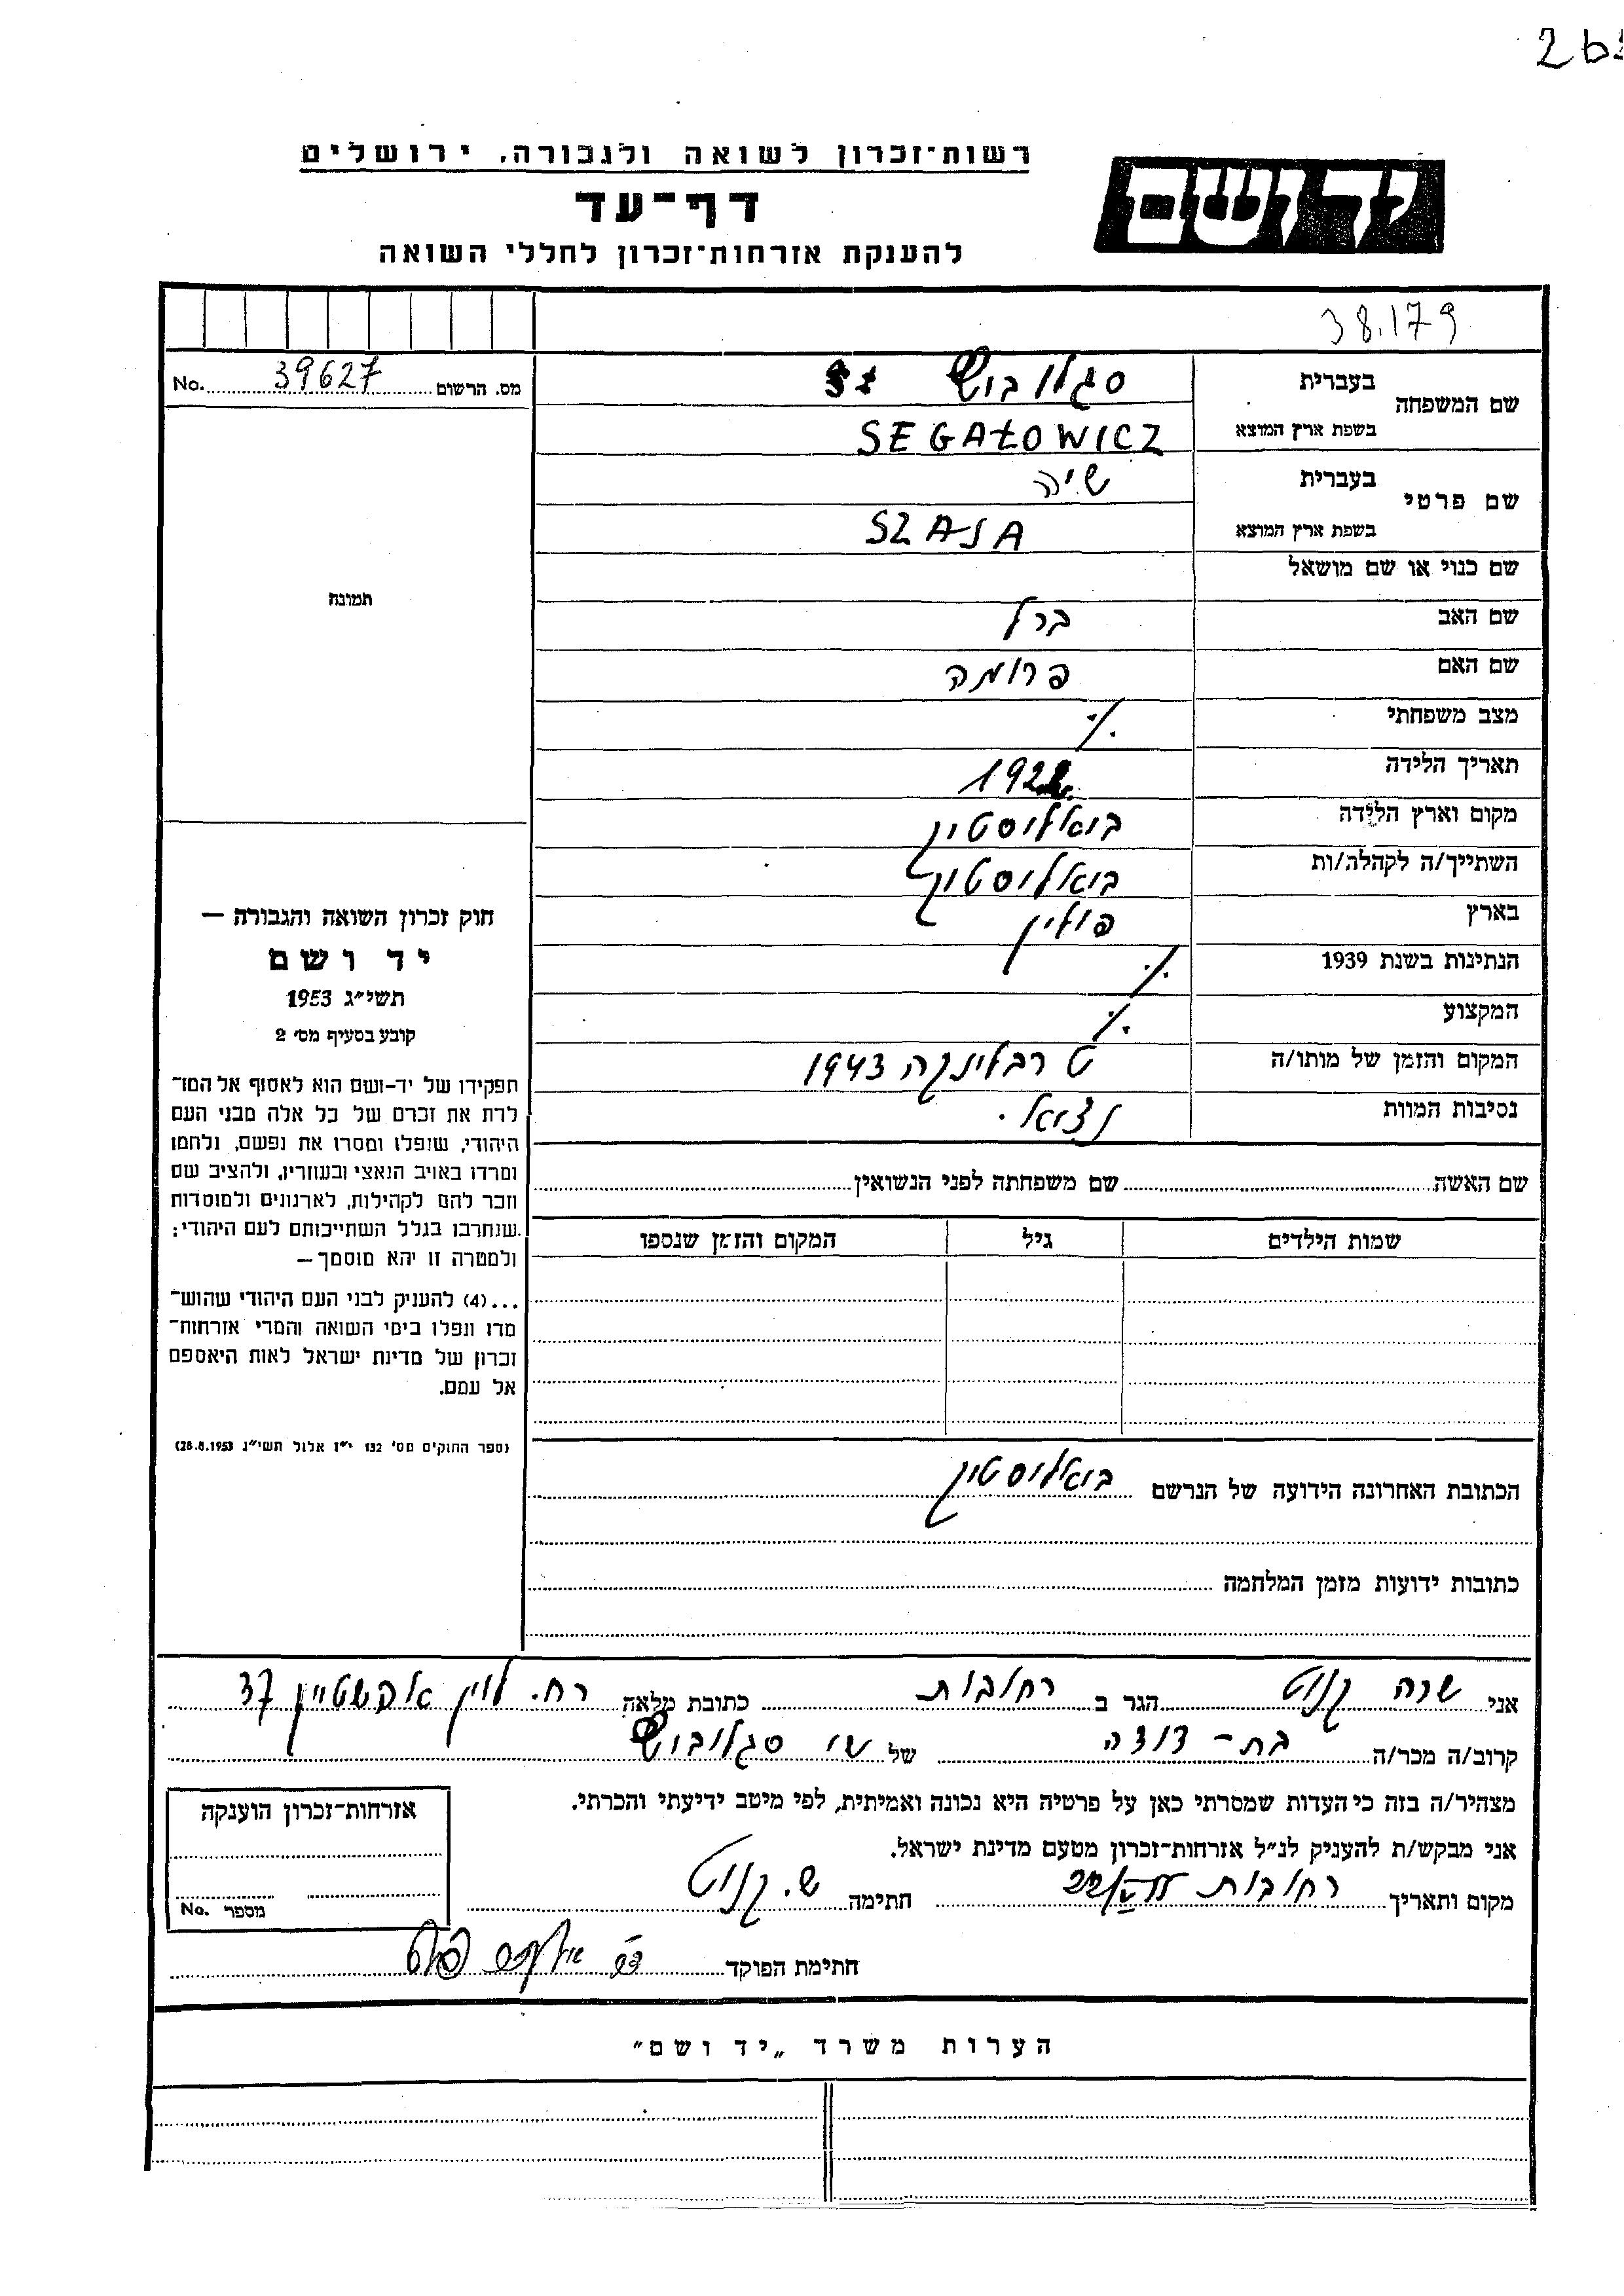 רשות־זכרון לשואה ולגבורה, ירושלים
יד ושם
דף־עד
להענקת אזרחות־זכרון לחללי השואה
38.179
מס. הרשום 39627 No.
שם המשפחה
בעברית
בשפת ארץ המוצא SEGAŁOWICZ
שם פרטי
בעברית שיה
בשפת ארץ המוצא SZAJA
שם כנוי או שם מושאל
תמונה
שם האב ברל
שם האם פרומה
מצב משפחתי ./.
תאריך הלידה
מקום וארץ הלידה ביאליסטוק
השתייך/ה לקהלה/ות ביאליסטוק
בארץ פולין
הנתינות בשנת 1939 ./.
המקצוע ./.
המקום והזמן של מותו/ה טרבלינקה 1943
נסיבות המוות
חוק זכרון השואה והגבורה —
יד ושם
תשי״ג 1953
קובע בסעיף מס׳ 2
תפקידו של יד-ושם הוא לאסוף אל המו־
לדת את זכרם של כל אלה מבני העם
היהודי, שנפלו ומסרו את נפשם, נלחמו
ומרדו באויב הנאצי ובעוזריו, ולהציב שם
וזכר להם לקהילות, לארגונים ולמוסדות
שנחרבו בגלל השתייכותם לעם היהודי;
ולמטרה זו יהא מוסמך —
...(4) להעניק לבני העם היהודי שהוש־
מדו ונפלו בימי השואה והמרי אזרחות־
זכרון של מדינת ישראל לאות היאספם
אל עמם.
(ספר החוקים מס׳ 132 י״ז אלול תשי״ג 28.8.1953)
שם האשה שם משפחתה לפני הנשואין
שמות הילדים גיל המקום והזמן שנספו
הכתובת האחרונה הידועה של הנרשם ביאליסטוק
כתובות ידועות מזמן המלחמה
אני שרה הגר ב רחובות כתובת מלאה רח. לוין אפשטיין 37
קרוב/ה מכר/ה בת-דודה של
מצהיר/ה בזה כי העדות שמסרתי כאן על פרטיה היא נכונה ואמיתית, לפי מיטב ידיעתי והכרתי.
אני מבקש/ת להעניק לנ״ל אזרחות־זכרון מטעם מדינת ישראל.
מקום ותאריך רחובות חתימה
חתימת הפוקד
אזרחות־זכרון הוענקה
מספר No.
הערות משרד „יד ושם״